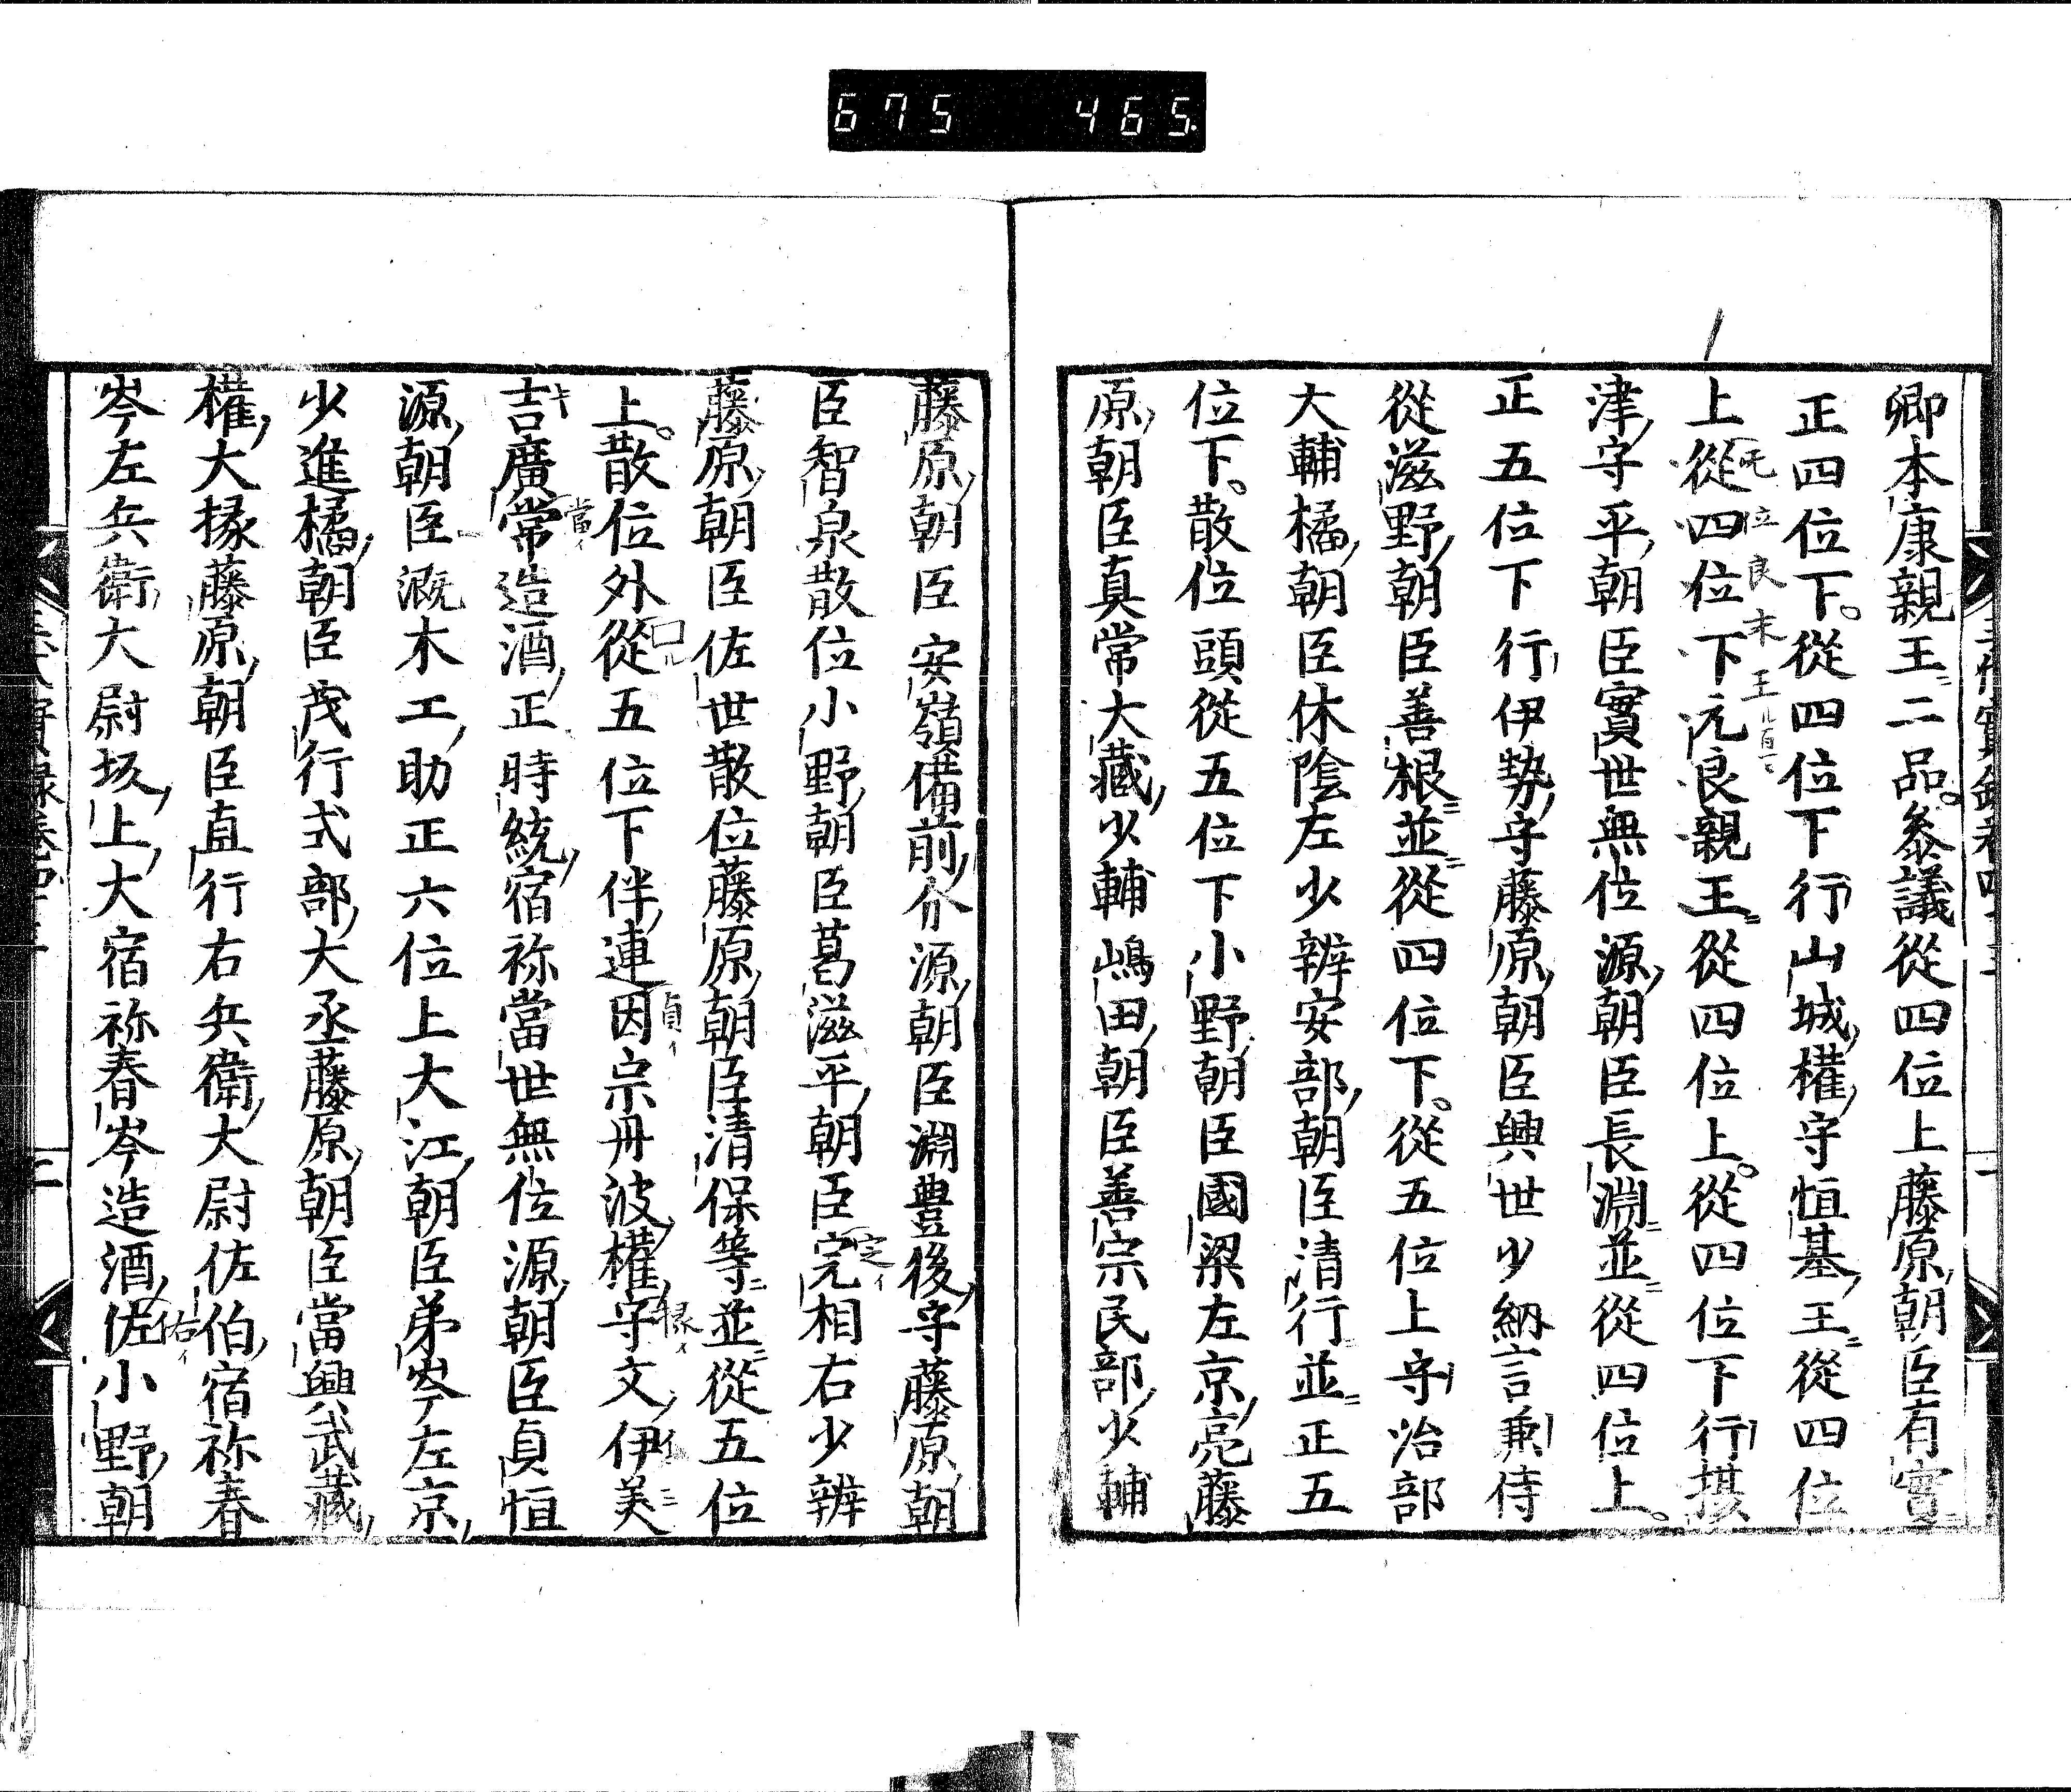 675 465
卿本康親王二品。參議從四位上藤原朝臣有實
正四位下。從四位下行山城權守恒基王從四位
上從四位下元良親王從四位上。從四位下行摂
无位良末王
津守平朝臣實世無位源朝臣長淵並從四位上。
正五位下行伊勢守藤原朝臣興世少納言兼侍
從滋野朝臣善根並從四位下。從五位上守治部
大輔橘朝臣休陰左少辨安部朝臣清行並正五
位下。散位頭從五位下小野朝臣國梁左京亮藤
原朝臣真常大藏少輔嶋田朝臣善宗民部少輔
藤原朝臣安嶺備前介源朝臣淵豊後守藤原朝
臣智泉散位小野朝臣葛滋平朝臣完相右少辨
定イ
藤原朝臣佐世散位藤原朝臣清保等並從五位
上。散位外從五位下伴連因宗丹波權守文伊美
貞イ
掾イ
吉廣常造酒正時統宿祢當世無位源朝臣貞恒
キ
當イ
源朝臣溉木工助正六位上大江朝臣弟岑左京
少進橘朝臣茂行式部大丞藤原朝臣當興武藏
權大掾藤原朝臣直行右兵衛大尉佐伯宿祢春
岑左兵衛大尉坂上大宿祢春岑造酒佐小野朝
佑イ